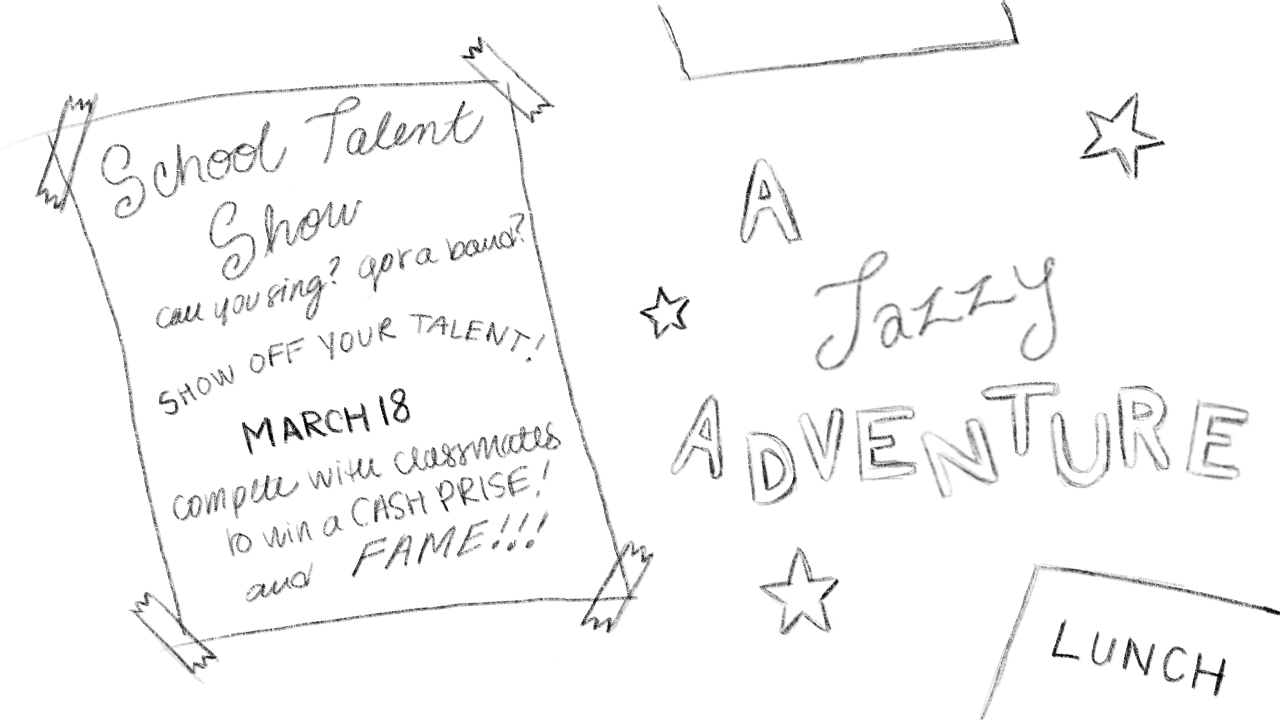 School Talent
Show
can you sing? got a band?
SHOW OFF YOUR TALENT!
MARCH 18
compete with classmates
to win a CASH PRISE!
and FAME!!!
A
Jazzy
ADVENTURE
LUNCH